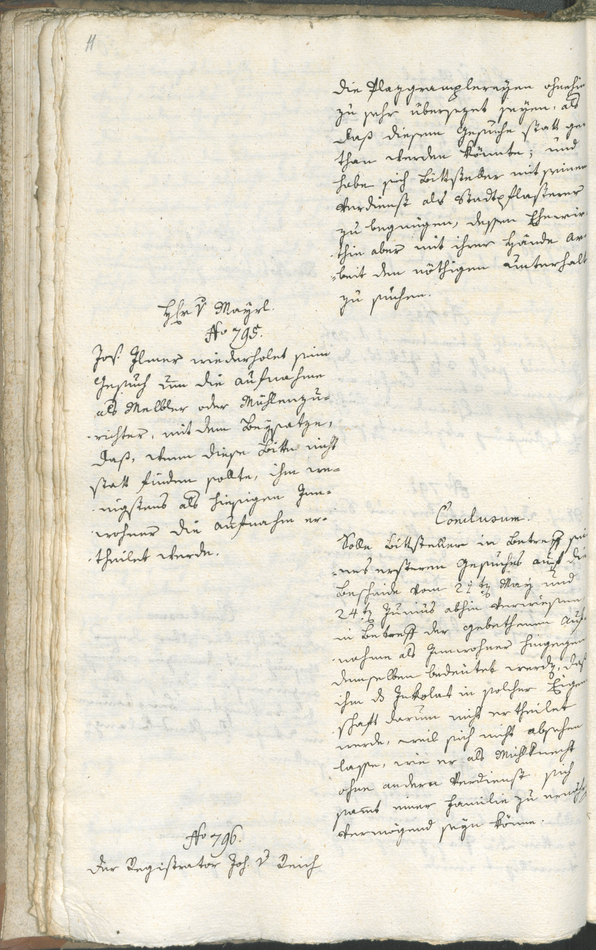 die Platzgramplereyen ohnehin
zu sehr übersezet seyen, als
daß diesem Gesuche statt ge-
than werden könnte, und
habe sich Bittsteller mit seinem
Verdienst als Stadtpflasterer
zu begnügen, dessen Ehewir-
thin aber mit ihrer Hände Ar-
beit den nöthigen Unterhalt
zu suchen.
Hhr v Mayrl.
No 795.
Jos. Ilmer wiederholet sein
Gesuch um die Aufnahme
als Melbler oder Mühlenzu-
richter, mit dem Beysatze,
daß, wenn diese Bitte nicht
statt finden sollte, ihm we-
nigstens als hiesigen Inn-
wohner die Aufnahm er-
theilet werde.
Conclusum.
Solle Bittsteller in Betreff sei-
nes ersteren Gesuches auf die
Bescheide vom May und
24t Junius abhin verwiesen
in Betreff der gebethenen Auf-
nahme als Innwohner hingegen
demselben bedeutet werde, daß
ihm ds Inkolat in solcher Eigen
schaft darum nicht ertheilet
werde, weil sich nicht absehen
lasse, wie er als Mühlknecht
ohne andern Verdienst sich
samt einer Familie zu ernähren
vermögend seyn könne.
No 796.
Der Registrator Joh. v Reich